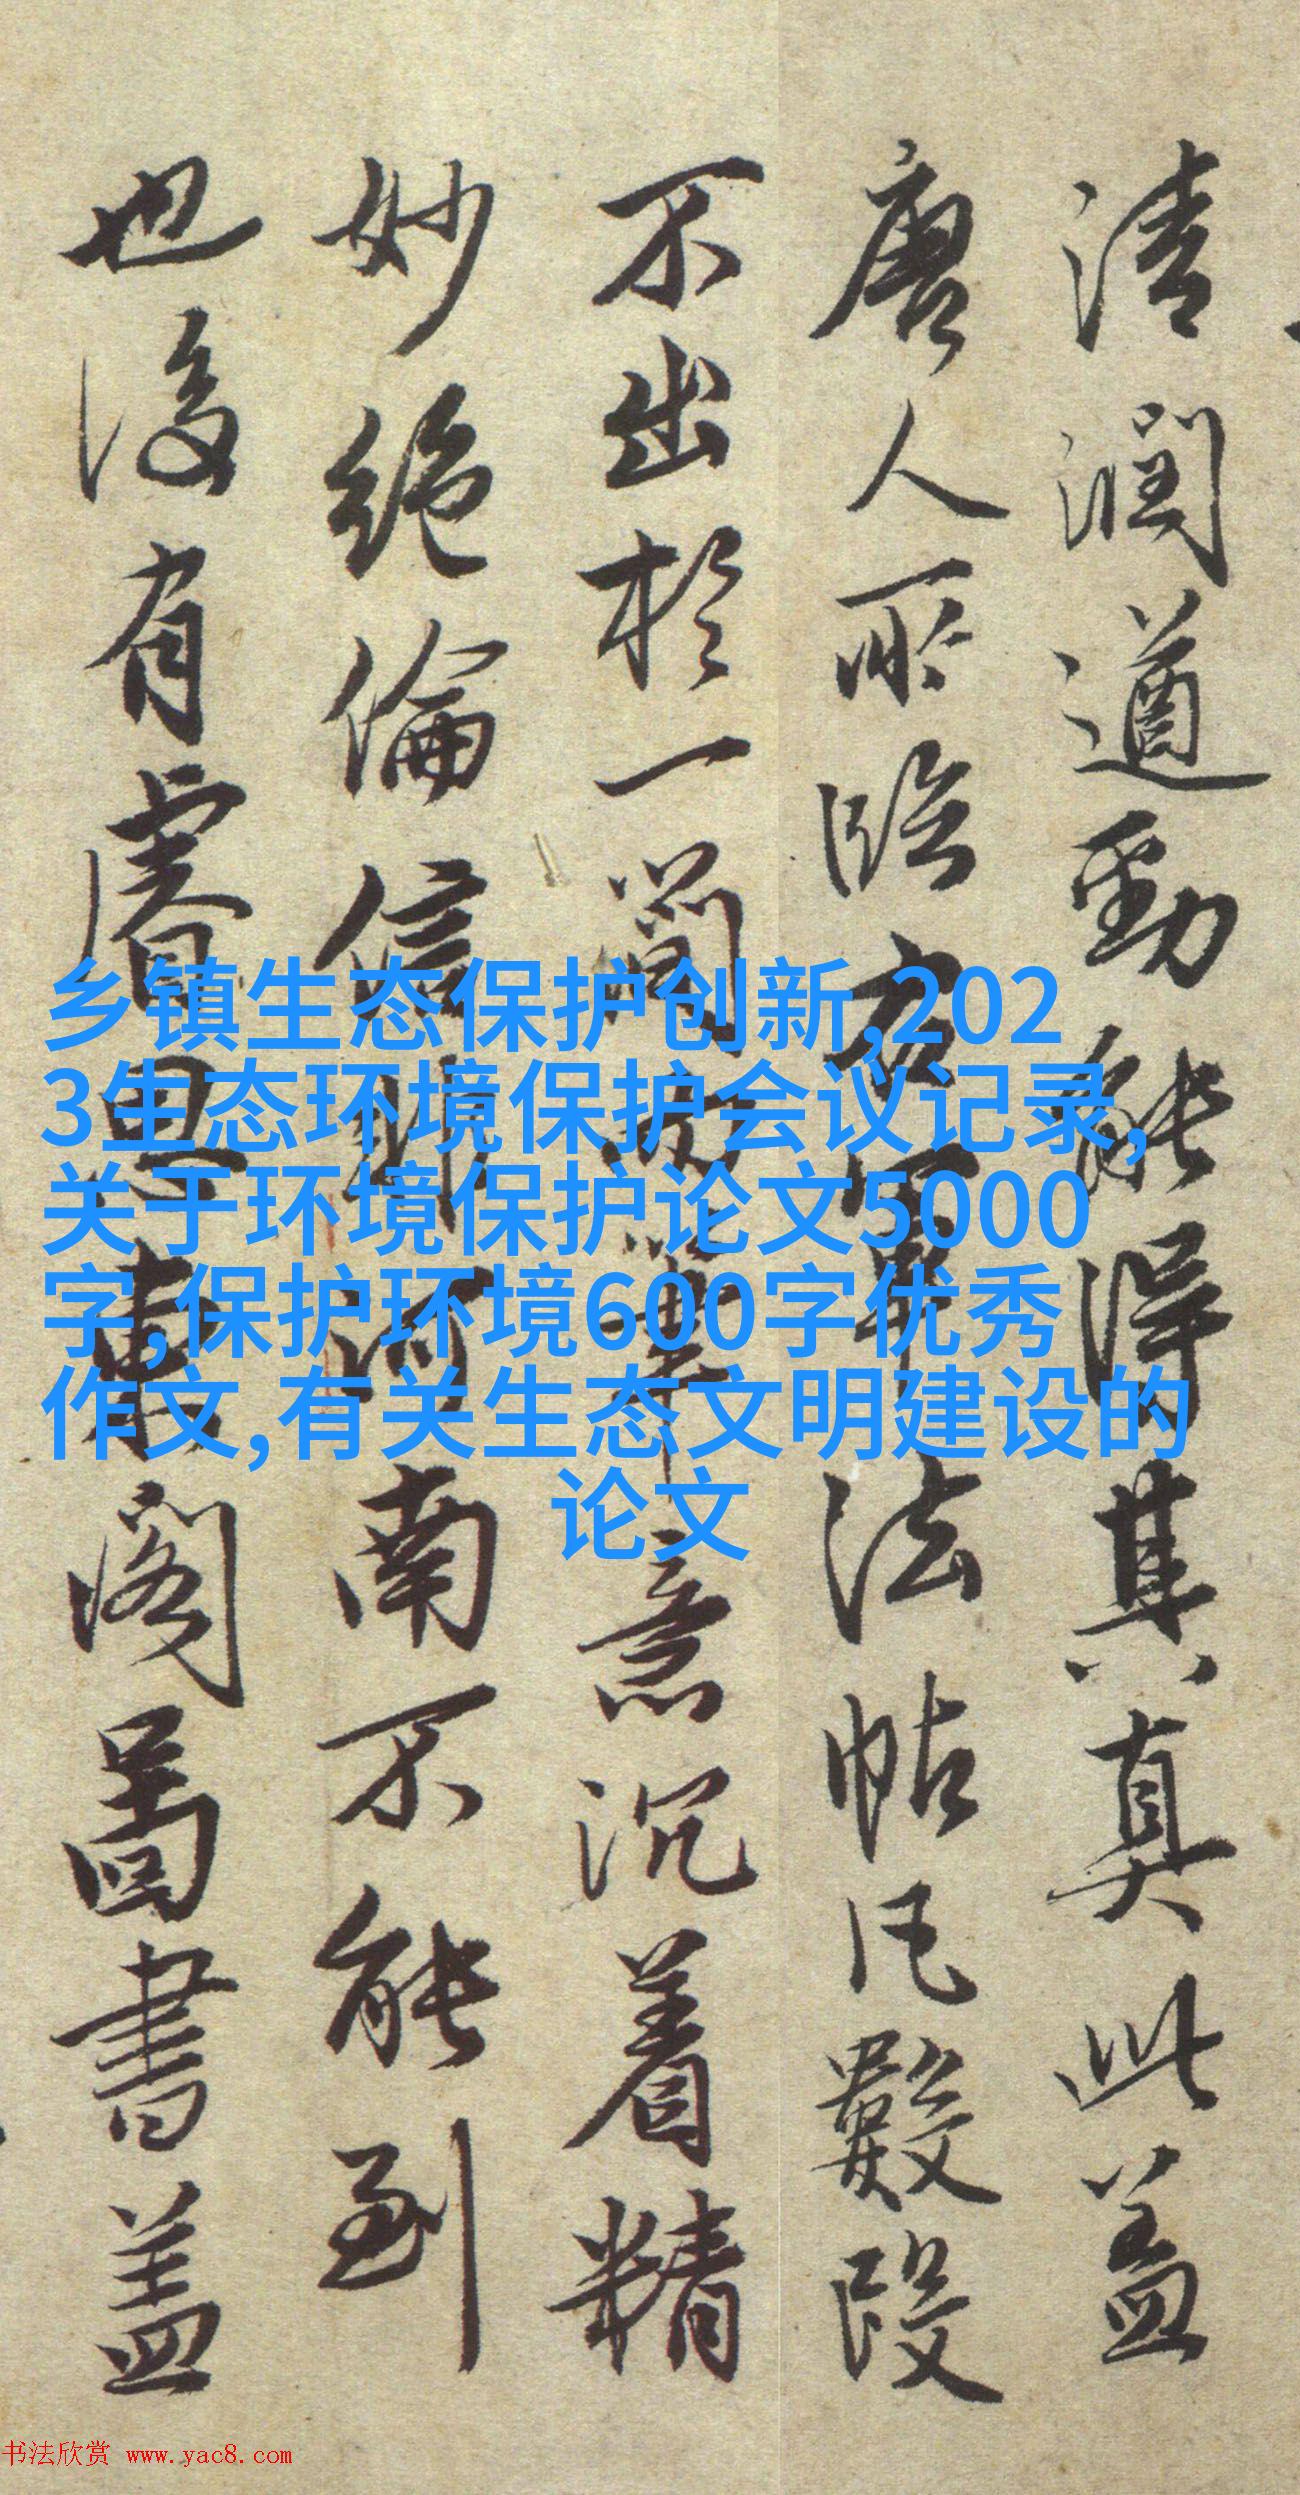 清潤遒勁能得其真此盖
唐人所臨右軍法帖凡數段
不出於一簡而筆意沉着精
妙絶倫信非河南不能到
也後有睿思東閣圖書盖
乡镇生态保护创新,202
3生态环境保护会议记录,
关于环境保护论文5000
字,保护环境600字优秀
作文,有关生态文明建设的
论文
书法欣赏 www.yac8.com